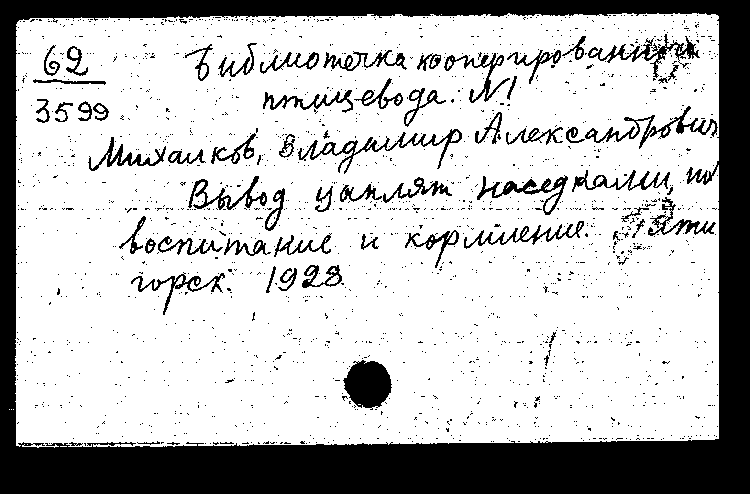 62
3599
Библиотечка кооперированного
птицевода. №1
Михалков, Владимир Александрович
Вывод цыплят наседками, их
воспитание и кормление. Пяти
горск. 1928